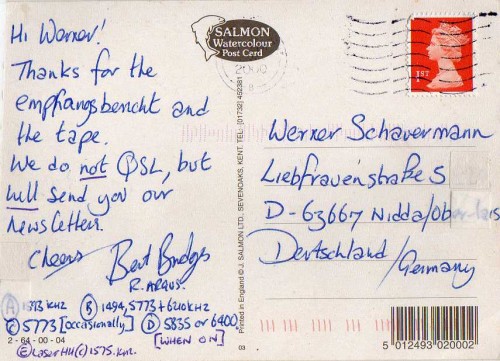 Hi Werner!
Thanks for the
empfangsbericht and
the tape.
We do not QSL, but
will send you our
newsletters.
Cheers Bert Bridges
R. ARGUS.
Ⓐ 1573 kHz Ⓑ 1494, 5773 + 6210 kHz
Ⓒ 5773 [occasionally] Ⓓ 5835 or 6400
[WHEN ON]
2-64-00-04
1575. kHz.
SALMON
Watercolour
Post Card
2000
1ST
Printed in England © J. SALMON LTD., SEVENOAKS, KENT. TEL: (01732) 452381
Werner Schauermann
Liebfrauenstraße 5
D-63667 Nidda/Ober-
Deutschland/
Germany
03
5 012493 020002